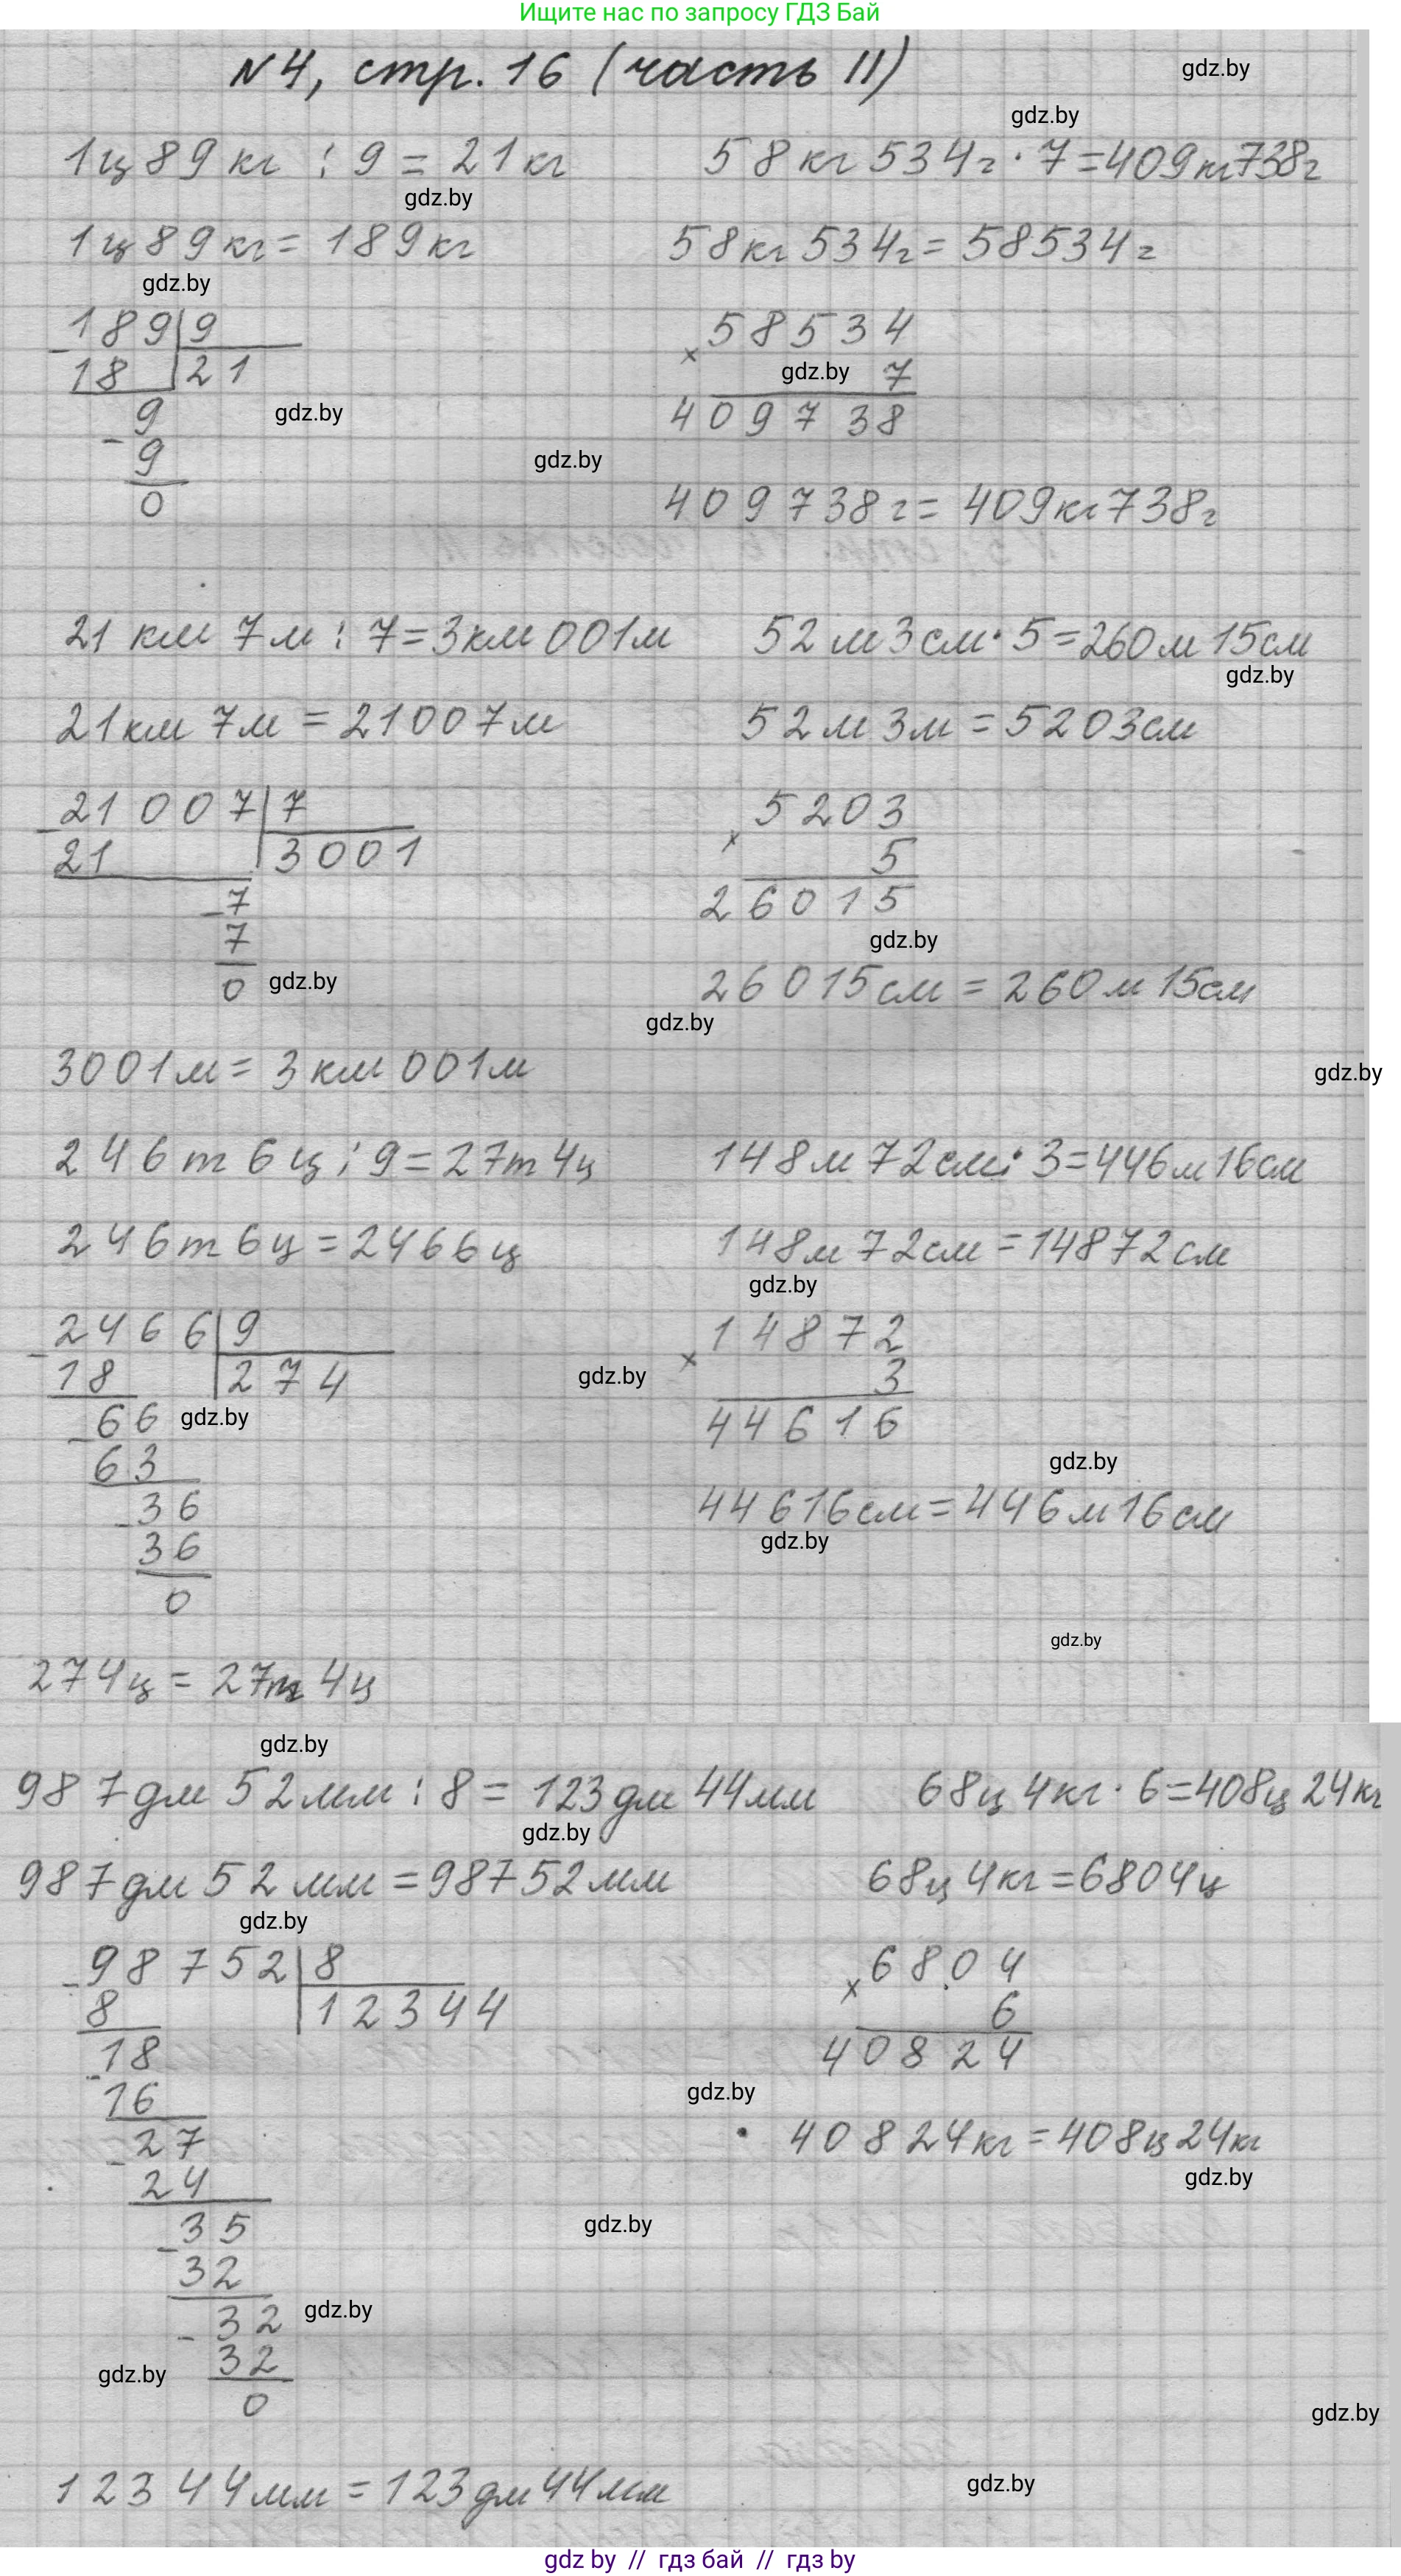 Ищите нас по запросу ГДЗ Бай
N4, стр. 16 (часть II)
gdz.by
gdz.by
1ц 89 кг : 9 = 21 кг
58 кг 534 г · 7 = 409 кг 738 г
gdz.by
1ц 89 кг = 189 кг
58 кг 534 г = 58534 г
gdz.by
189 | 9
- 18 | 21
9
- 9
0
gdz.by
58534
×
gdz.by
7
409738
gdz.by
409738 г = 409 кг 738 г
21 км 7 м : 7 = 3 км 001 м
52 м 3 см · 5 = 260 м 15 см
gdz.by
21 км 7 м = 21007 м
52 м 3 м = 5203 см
21007 | 7
- 21 | 3001
- 7
7
0
gdz.by
5203
×
5
26015
gdz.by
26015 см = 260 м 15 см
gdz.by
3001 м = 3 км 001 м
gdz.by
246 т 6 ц : 9 = 27 т 4 ц
148 м 72 см · 3 = 446 м 16 см
246 т 6 ц = 2466 ц
148 м 72 см = 14872 см
gdz.by
2466 | 9
- 18 | 274
66
gdz.by
- 63
36
- 36
0
gdz.by
14872
×
3
44616
gdz.by
44616 см = 446 м 16 см
gdz.by
gdz.by
274 ц = 27 т 4 ц
gdz.by
987 дм 52 мм : 8 = 123 дм 44 мм
68 ц 4 кг · 6 = 408 ц 24 кг
gdz.by
987 дм 52 мм = 98752 мм
68 ц 4 кг = 6804 ц
gdz.by
98752 | 8
- 8 | 12344
18
- 16
27
- 24
35
- 32
32
- 32
0
6804
×
6
40824
gdz.by
40824 кг = 408 ц 24 кг
gdz.by
gdz.by
gdz.by
gdz.by
gdz.by
12344 мм = 123 дм 44 мм
gdz.by
gdz by // гдз бай // гдз by